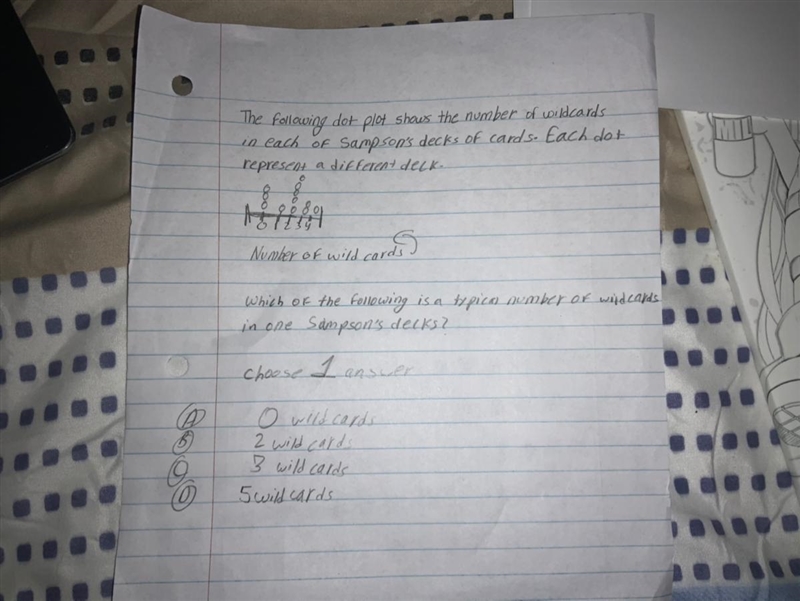 The following dot plot shows the number of wildcards
in each of Sampson's decks of cards. Each dot
represent a different deck.
0 1 2 3 4
Number of wild cards
Which of the following is a typical number of wildcards
in one Sampson's decks?
choose 1 answer
A 0 wildcards
B 2 wildcards
C 3 wildcards
D 5 wildcards